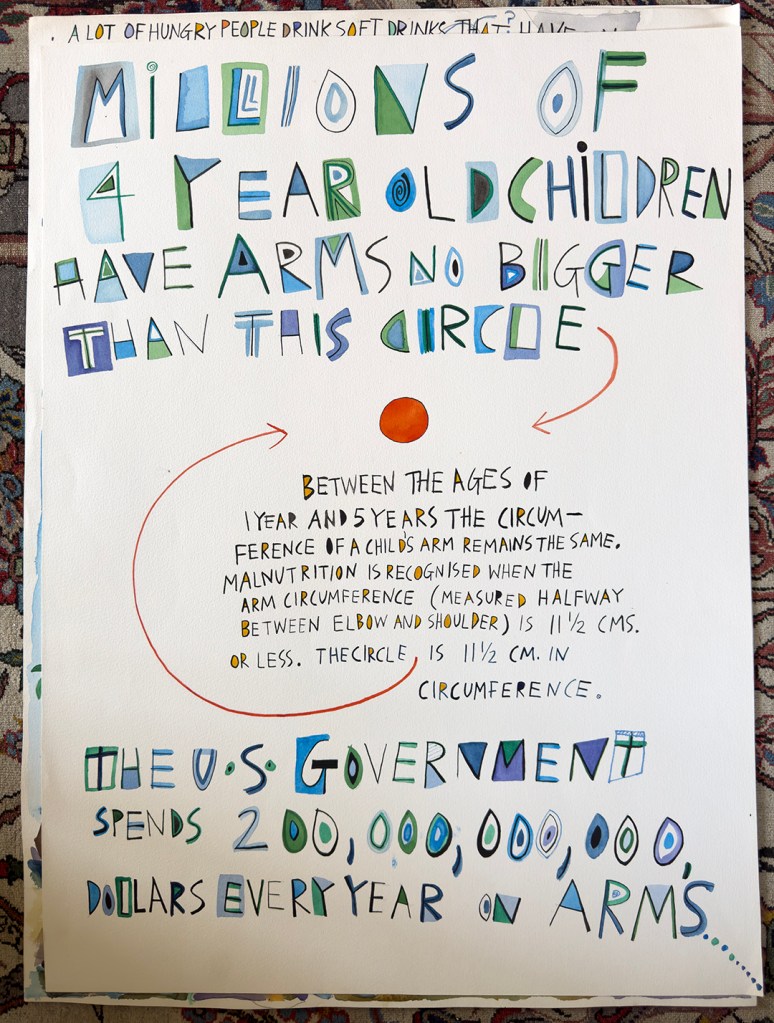 A LOT OF HUNGRY PEOPLE DRINK SOFT DRINKS THAT? HAVE
MILLIONS OF
4 YEAR OLD CHILDREN
HAVE ARMS NO BIGGER
THAN THIS CIRCLE
BETWEEN THE AGES OF
1 YEAR AND 5 YEARS THE CIRCUM-
FERENCE OF A CHILD'S ARM REMAINS THE SAME.
MALNUTRITION IS RECOGNISED WHEN THE
ARM CIRCUMFERENCE (MEASURED HALFWAY
BETWEEN ELBOW AND SHOULDER) IS 11 1/2 CMS.
OR LESS. THE CIRCLE IS 11 1/2 CM. IN
CIRCUMFERENCE.
THE U.S. GOVERNMENT
SPENDS 200,000,000,000,
DOLLARS EVERY YEAR ON ARM'S.....